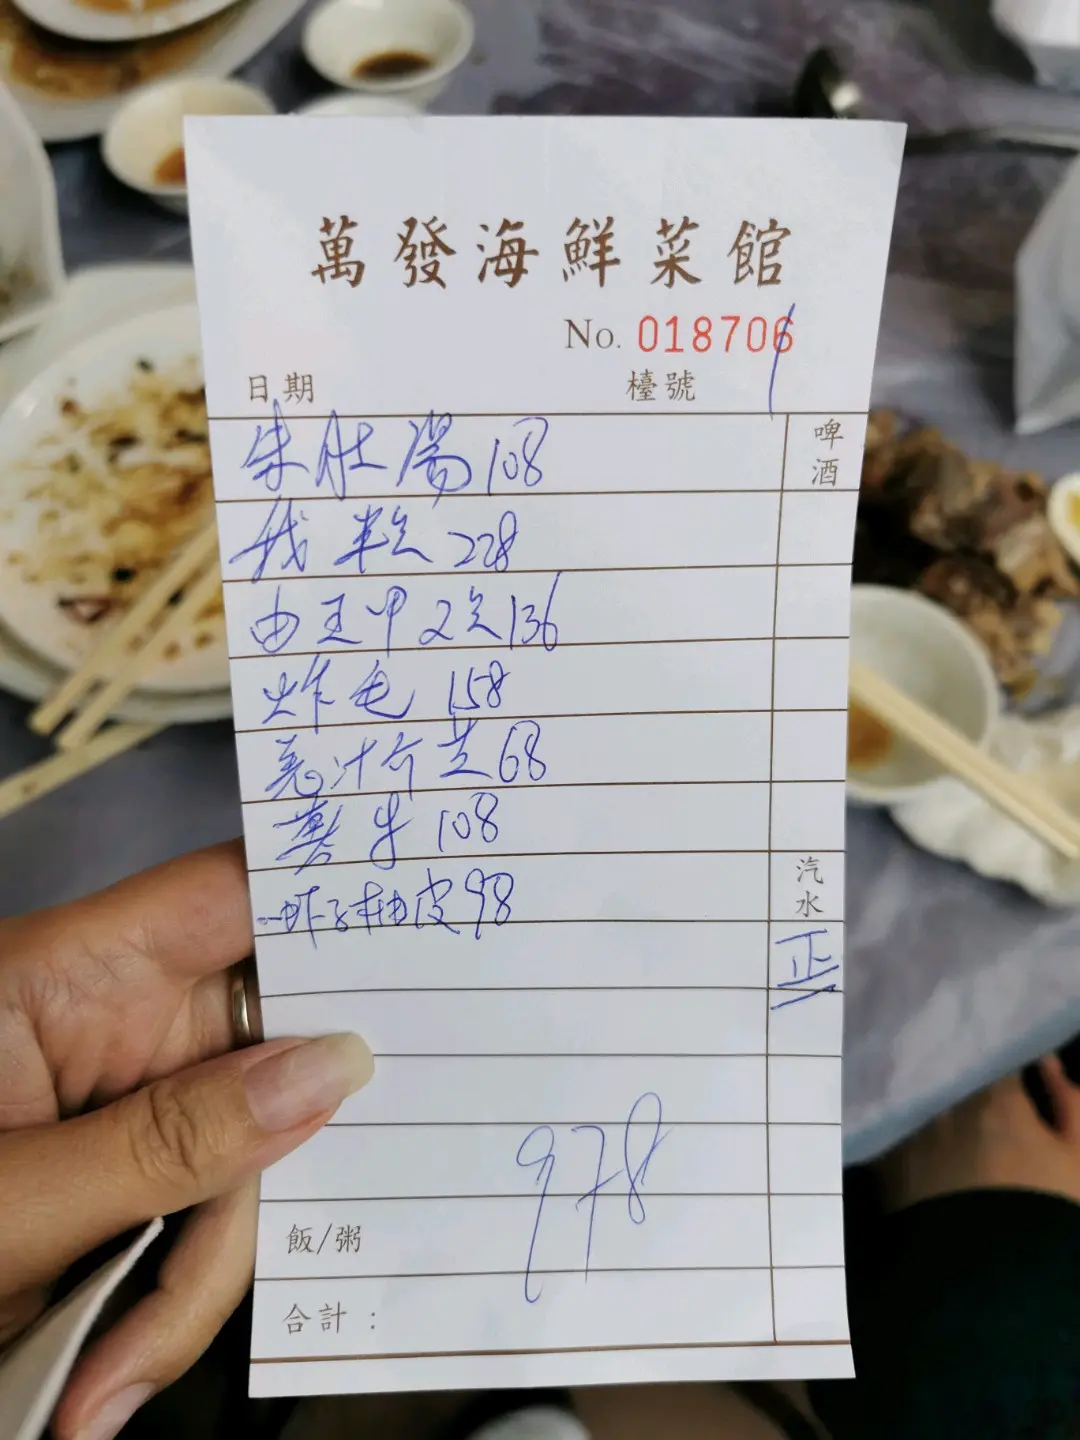 萬發海鮮菜館
No. 018706
日期 檯號 1
啤酒
朱肚湯 108
228
由王甲 2只 136
炸 158
汁介芝 68
108
虾子柚皮 98
汽水
正
978
飯/粥
合計：